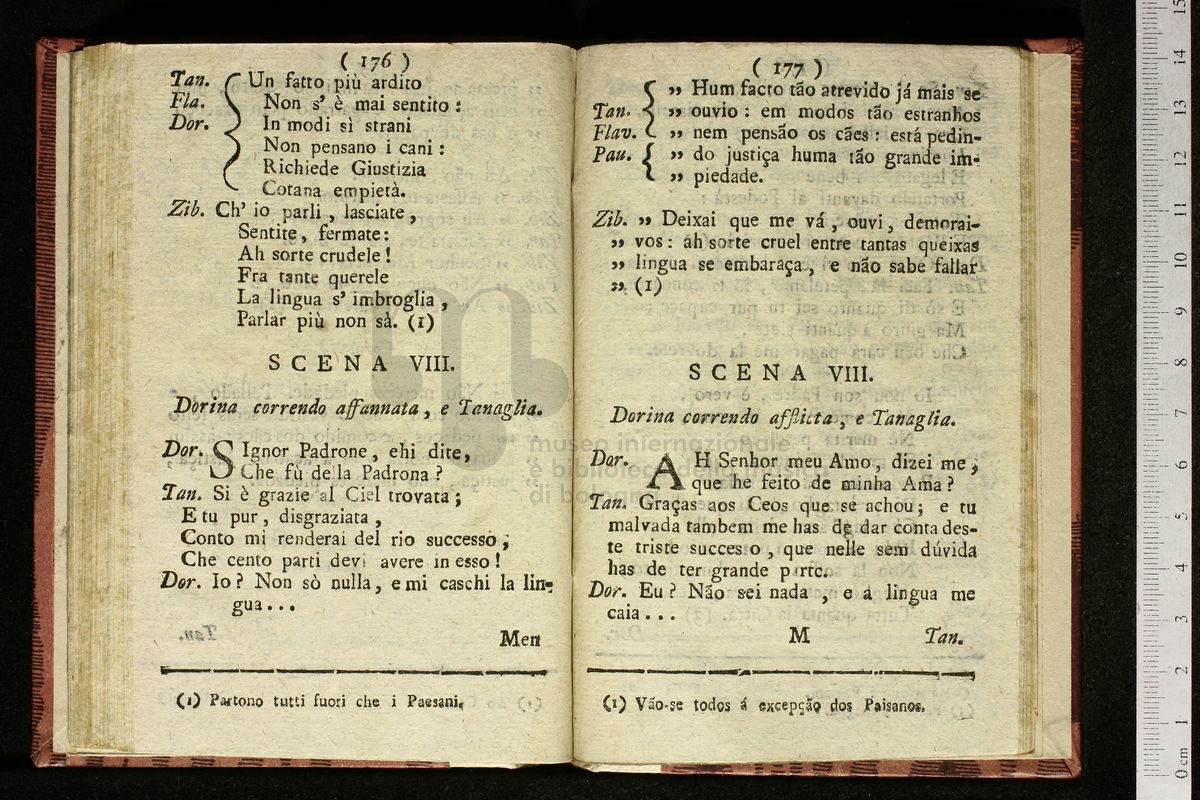 ( 176 )
Tan. Un fatto più ardito
Fla. Non s' è mai sentito :
Dor. In modi sì strani
Non pensano i cani :
Richiede Giustizia
Cotana empietà.
Zib. Ch' io parli , lasciate ,
Sentite , fermate :
Ah sorte crudele !
Fra tante querele
La lingua s' imbroglia ,
Parlar più non sà. (1)
SCENA VIII.
Dorina correndo affannata , e Tanaglia.
Dor. SIgnor Padrone , ehi dite,
Che fù de la Padrona ?
Tan. Si è grazie al Ciel trovata ;
E tu pur , disgraziata ,
Conto mi renderai del rio successo ;
Che cento parti devi avere in esso !
Dor. Io ? Non sò nulla , e mi caschi la lin-
gua . . .
Men
(1) Partono tutti fuori che i Paesani.
( 177 )
„ Hum facto tão atrevido já mais se
Tan. „ ouvio : em modos tão estranhos
Flav. „ nem pensão os cães : está pedin-
Pau. „ do justiça huma tão grande im-
„ piedade.
Zib. „ Deixai que me vá , ouvi , demorai-
„ vos : ah sorte cruel entre tantas queixas
„ lingua se embaraça , e não sabe fallar
„ (1)
SCENA VIII.
Dorina correndo afflicta , e Tanaglia.
Dor. AH Senhor meu Amo , dizei me ,
que he feito de minha Ama ?
Tan. Graças aos Ceos que se achou ; e tu
malvada tambem me has de dar conta des-
te triste succes o , que nelle sem dúvida
has de ter grande p rte.
Dor. Eu ? Não sei nada , e a lingua me
caia . . .
M Tan.
(1) Vão-se todos á excepção dos Paisanos.
museo internazionale
e biblioteca della musica
di bologna
0 cm 1 2 3 4 5 6 7 8 9 10 11 12 13 14 15